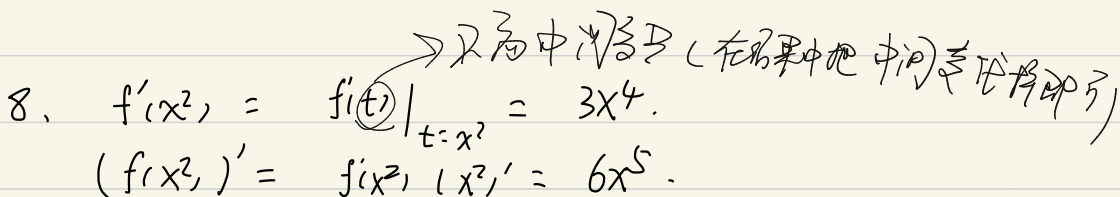 →只需中间变量(在结果中把中间变量代换即可)
8、 f'(x²) = f'(t)|t=x² = 3x⁴.
(f(x²))' = f'(x²)(x²)' = 6x⁵.